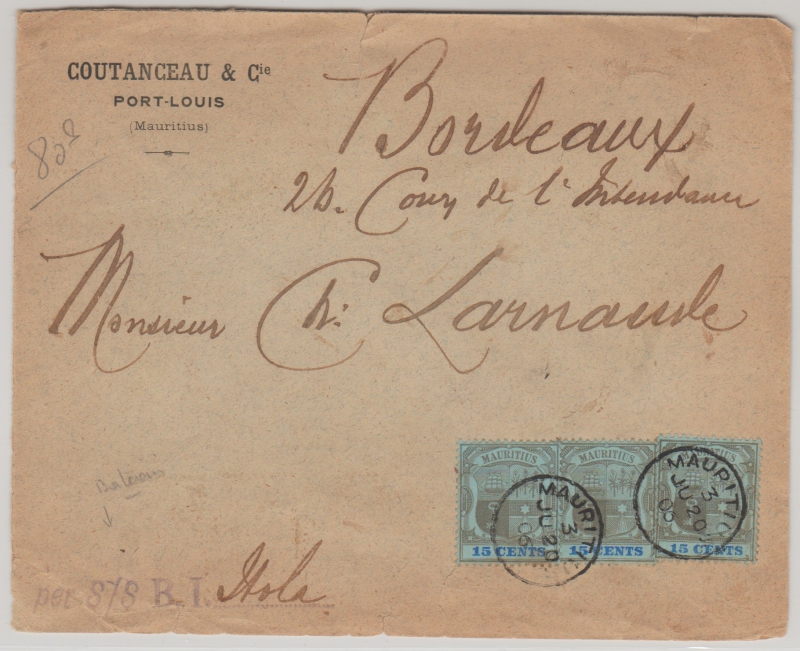 COUTANCEAU & Cie
PORT-LOUIS
(Mauritius)
Bordeaux
26. Cours de l'Intendance
Monsieur Ch: Larnaude
MAURITIUS
MAURITIUS
15 CENTS
15 CENTS
15 CENTS
MAURITIUS
3
JU 20
06
MAURITIUS
3
JU 20
06
per S/S B.I. Itola